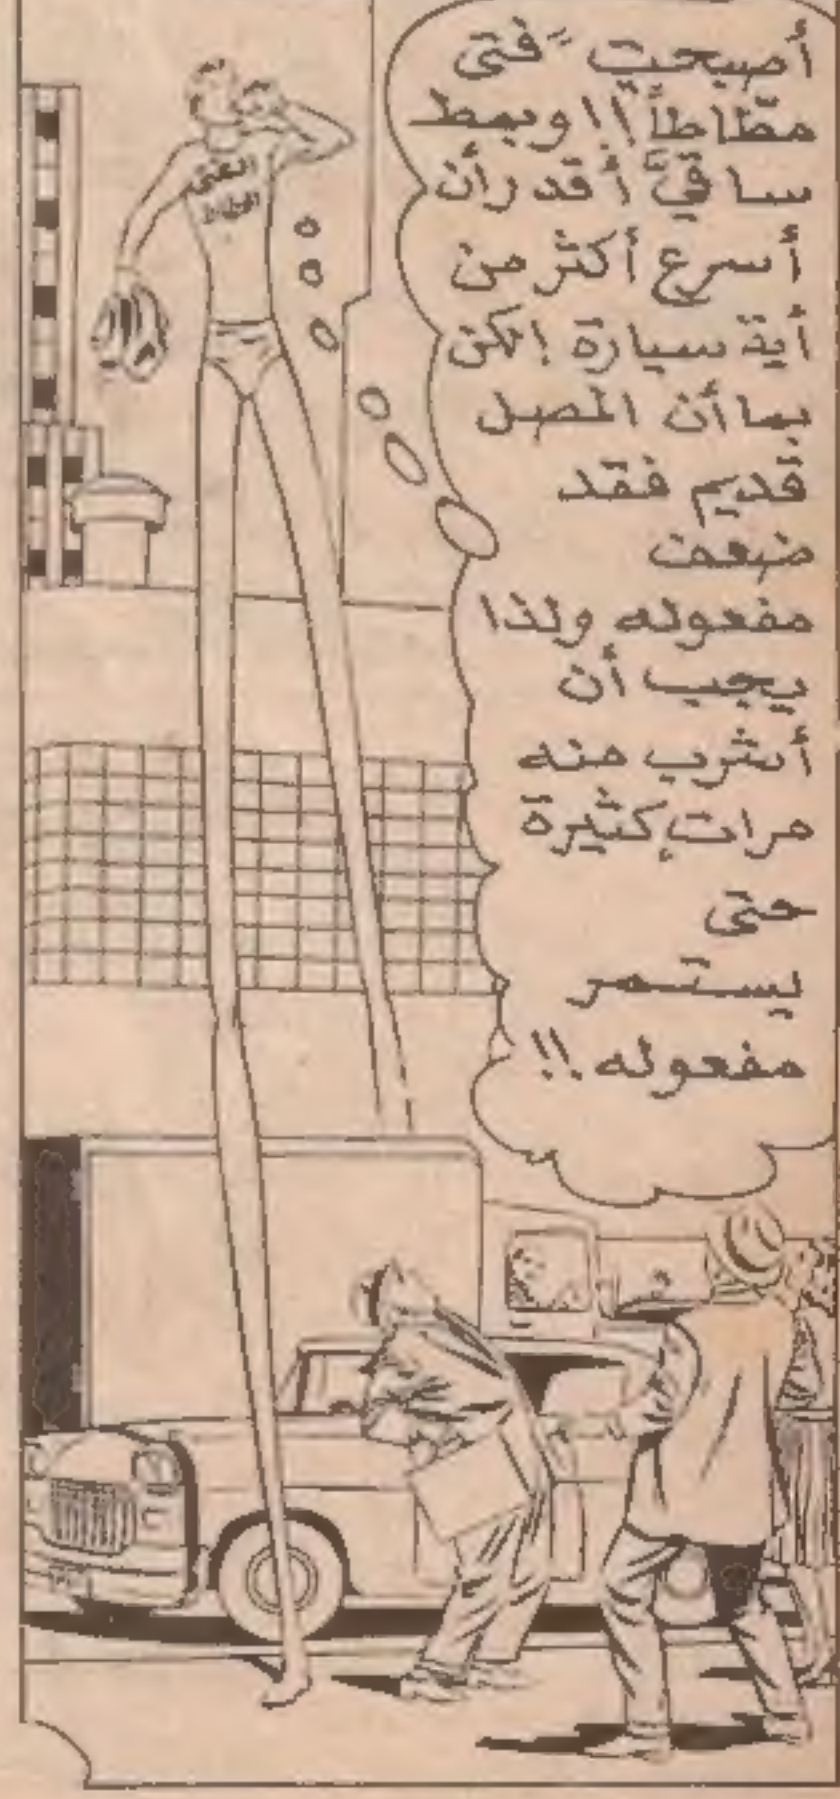 أصبحت "فتى
مطّاطاً"!! وبمط
ساقيَّ أقدر أن
أسرع أكثر من
أية سيارة! لكن
بما أن المصل
قديم فقد
ضعف
مفعوله ولذا
يجب أن
أشرب منه
مرات كثيرة
حتى
يستمر
مفعوله!!
الفتى
المطاط